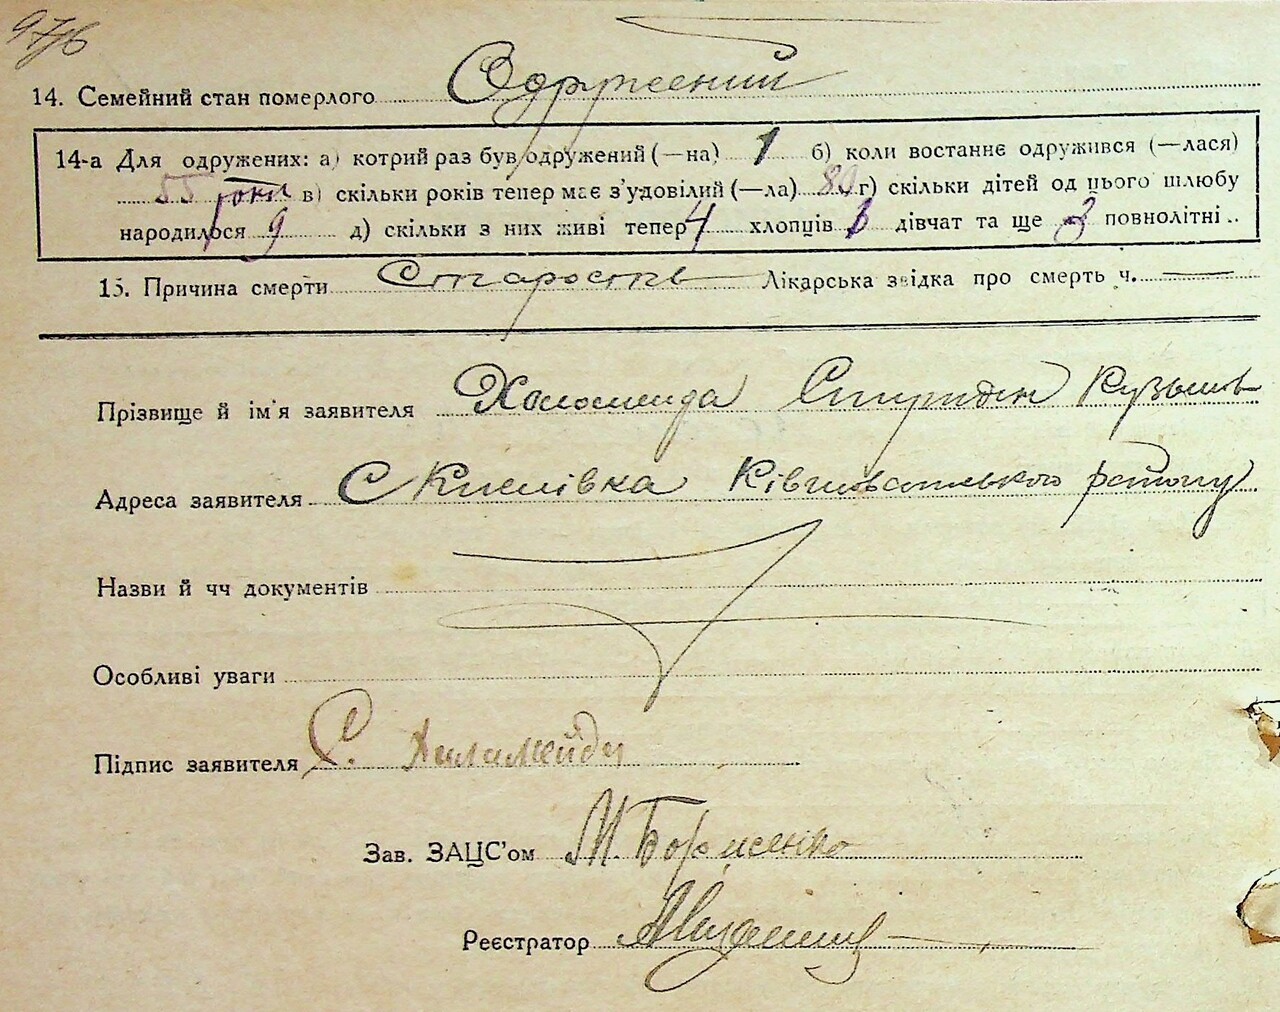 97/6
14. Семейний стан померлого Одружений
14-а Для одружених: а) котрий раз був одружений (—на) 1 б) коли востаннє одружився (—лася)
55 роки в) скільки років тепер має з'удовілий (—ла) 80 г) скільки дітей од цього шлюбу
народилося 9 д) скільки з них живі тепер 4 хлопців дівчат та ще 3 повнолітні ..
15. Причина смерти Старость Лікарська звідка про смерть ч.
Прізвище й ім'я заявителя Спиридон Кузьмов
Адреса заявителя С Кислівка району
Назви й чч документів
Особливі уваги
Підпис заявителя С.
Зав. ЗАЦС'ом М. Борисенко
Реєстратор